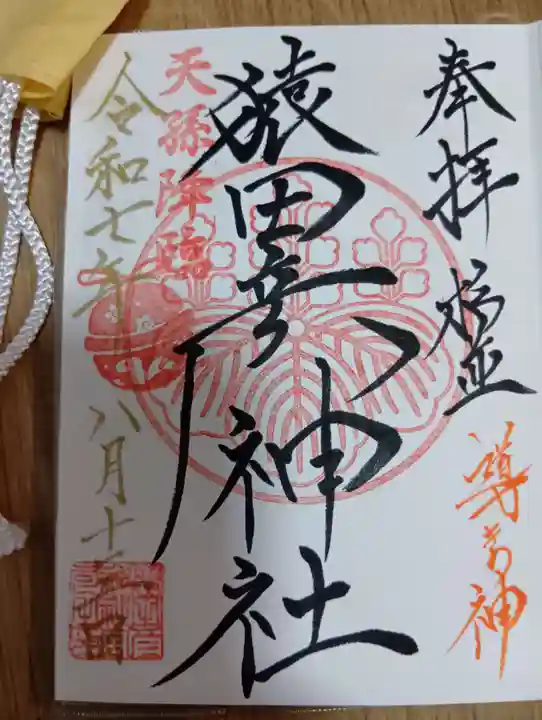 奉拝
猿田彦神社
導き神
天孫降臨
令和七年八月十